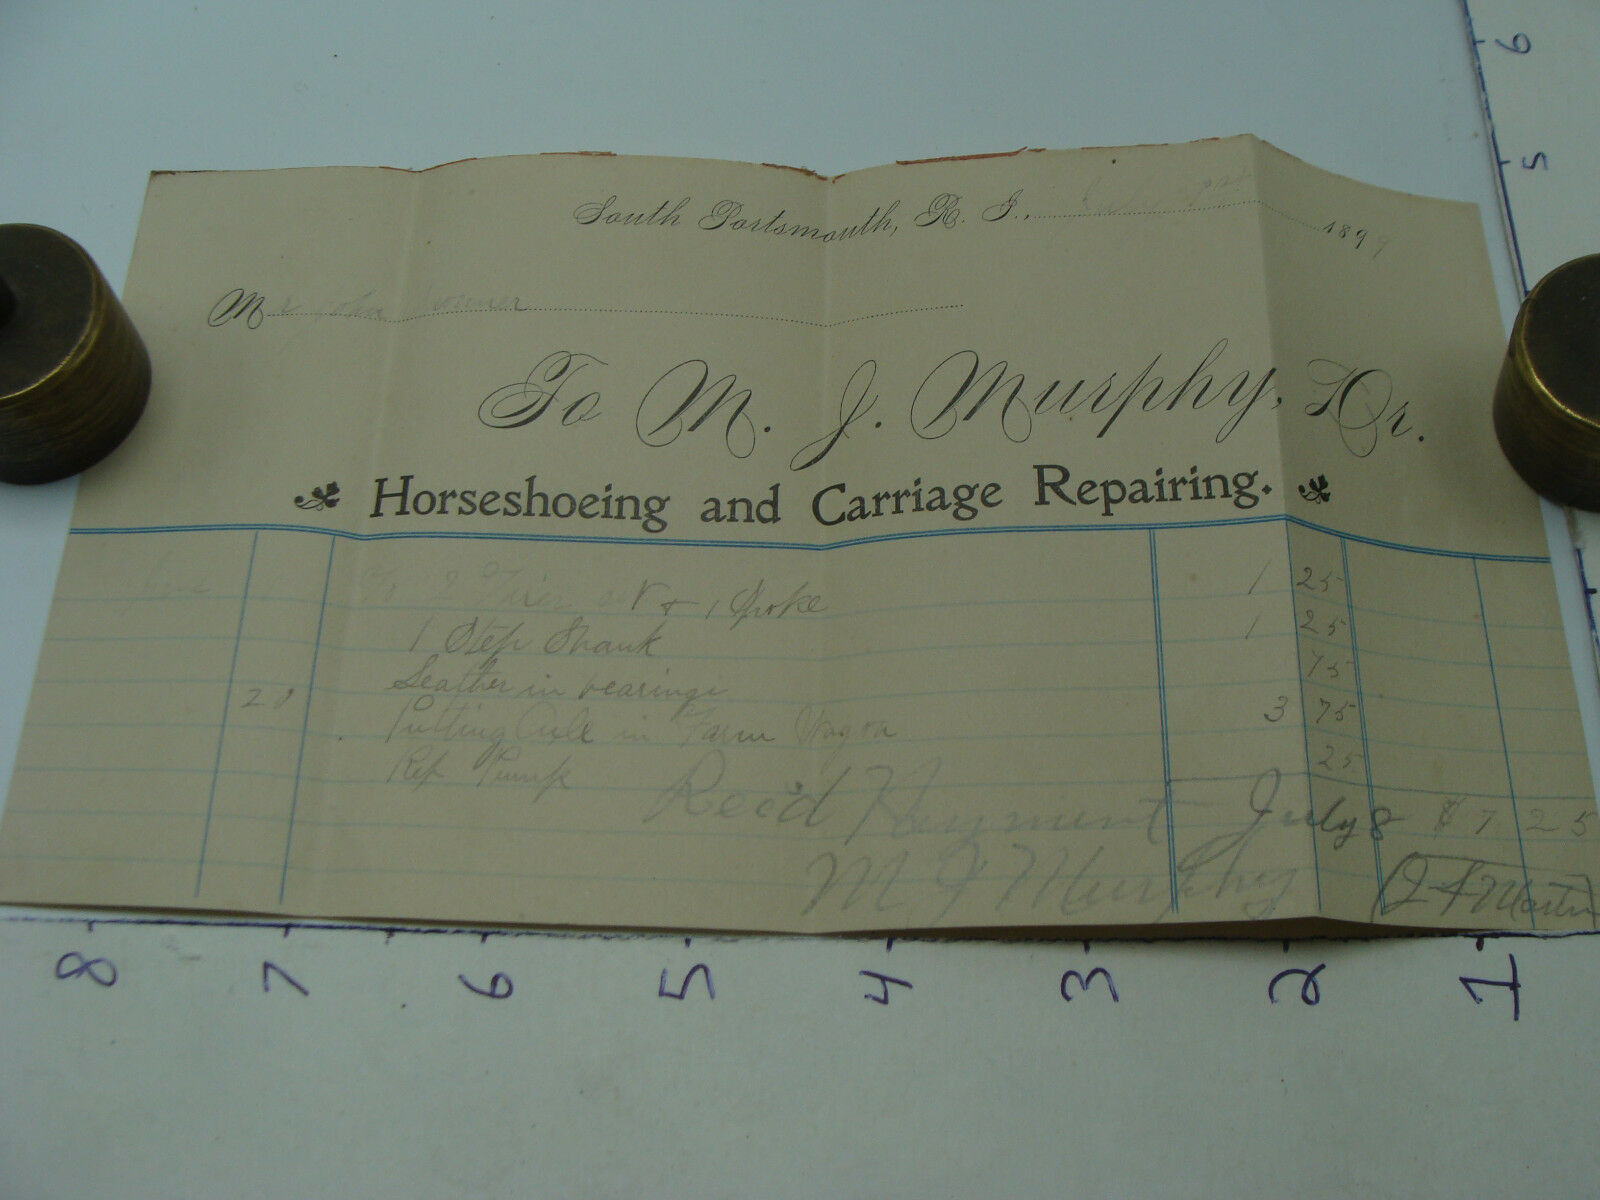 South Portsmouth, R. I., July 1899
Mr John
To M. J. Murphy, Dr.
Horseshoeing and Carriage Repairing.
June To 2 Tires set & 1 Spoke 1 25
1 Step Shank 1 25
Leather in bearings 75
28 Putting Axle in Farm Wagon 3 75
Rep Pump 25
Rec'd Payment July 8 $7 25
M J Murphy Martin
8 7 6 5 4 3 2 1
6
5